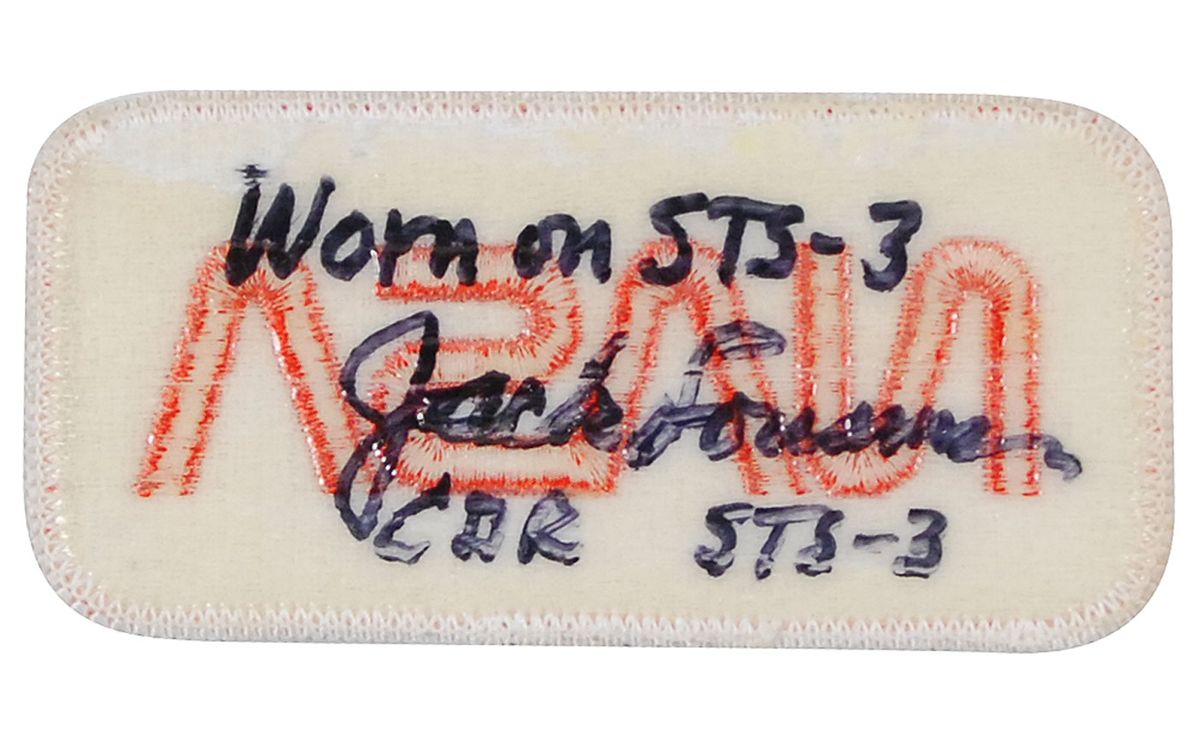 Worn on STS-3
Jack Lousma
CDR STS-3
NASA